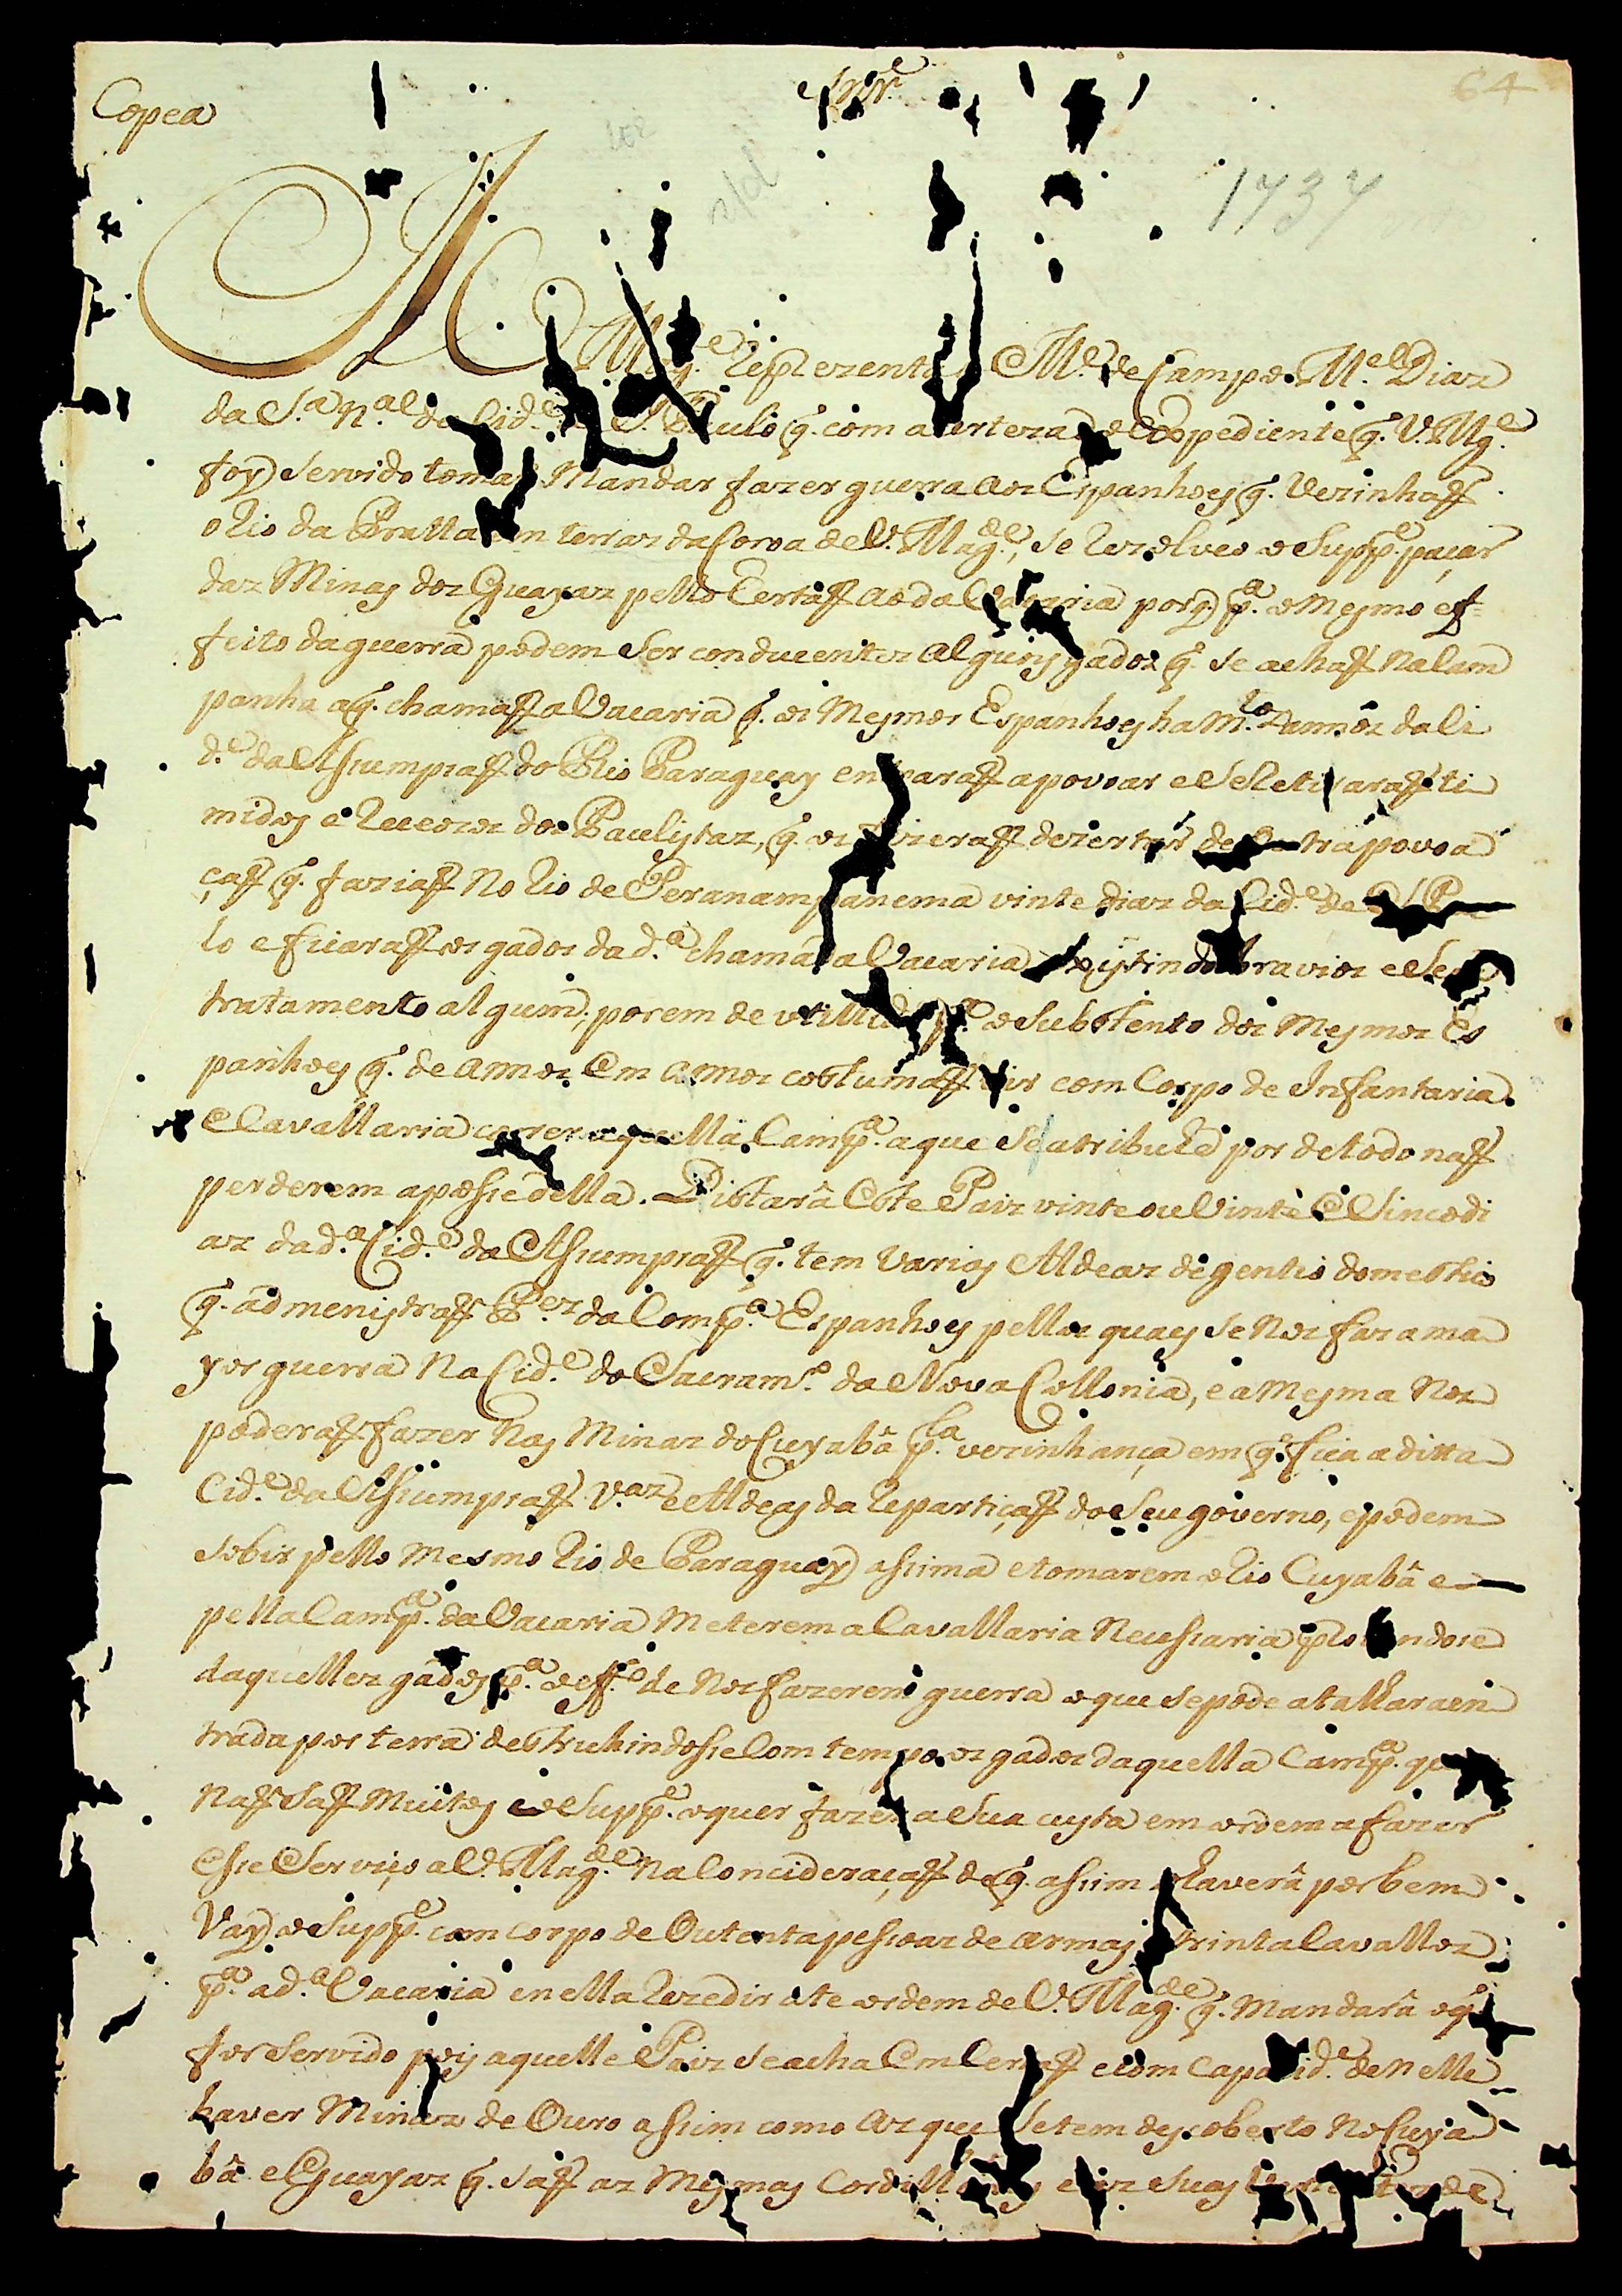 Copea
64
1737
A V. Mag.e reprezenta M.e de Campo M.el Diaz
da S.a n.al da Cid.e S. Paulo q. com a serteza do expediente q. V. Mg.e
foy servido tomar Mandar fazer guerra aos Espanhoes q. vezinhaõ
o Rio da Pratta em terras da Coroa de V. Mag.de, se rezolveo o Supp.e paçar
das Minas dos Guayaz pello Certaõ ao da Vacaria porq. p.a o mesmo ef-
feito da guerra podem ser conducentes alguns gados q. se achaõ na Cam
panha a q. chamaõ a Vacaria q. os mesmos Espanhoes ha m.tos annos da Ci
d.e da Assumpsaõ do Rio Paraguay entraraõ a povoar e se retiraraõ ti
midos e receozos dos Paulistaz, q. os fizeraõ dezertar de outra povoa
çaõ q. faziaõ no Rio de Peranampanema vinte dias da Cid.e de S. Pau
lo e ficaraõ os gados da d.a chamada Vacaria existindo bravios e sem
tratamento algum; porem de utillid.e p.a o substento dos mesmos Es
panhoes q. de annos em annos costumaõ vir com Corpo de Infantaria
e Cavallaria correr aquella Camp.a a que se atribuhe por de todo naõ
perderem a posse della. Distará este Paiz vinte ou vinte e sinco di
az da d.a Cid.e da Assumpsaõ q. tem varias Aldeas de gentio domestico
q. admenistraõ P.es da Comp.a Espanhoes pellos quaes se nos faz a ma
yor guerra na Cid.e do Sacram.to da Nova Collonia, e a mesma nos
poderaõ fazer nas Minas do Cuyabâ p.la vezinhança em q. fica a ditta
Cid.e da Assumpsaõ V.as e Aldeas da repartiçaõ do seu governo, e podem
sobir pello mesmo Rio de Paraguay assima e tomarem o Rio Cuyabâ e
pella Camp.a da Vacaria meterem a Cavallaria necessaria
daquelles gados p.a o eff.o de nos fazerem guerra o que se pode atalhar a en
trada por terra destruhindosse com tempo os gados daquella Camp.a que
naõ saõ muitos e o Supp.e o quer fazer a sua custa em ordem a fazer
esse serviço a V. Mag.de na concideraçaõ de q. assim o haverá por bem
Vay o Supp.e com corpo de outenta pessoas de armas trinta Cavallos
p.a a d.a Vacaria e nella rezedir ate ordem de V. Mag.de q. mandará o q.
for servido pois aquelle Paiz se acha em Certaõ e com capacid.e de nelle
haver Minas de Ouro assim como as que se tem descoberto no Cuya
bâ e Guayaz q. saõ as mesmas Cordilheiras e as suas